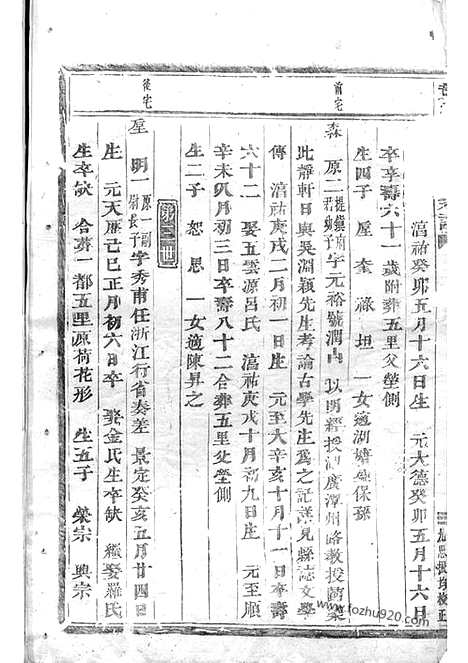 淳祐癸卯五月十六日生 元大德癸卯五月十六日
卒辛壽六十一歲附葬五里父塋側
生四子 垕 奎 祿 坦 一女適湖塘孫保孫
前宅
森 原二 提鎮南 君幼子 字元裕號澗山 以明經授潭州路教授
此靜軒日與吳淵穎先生考論古學先生爲之記詳見縣誌文學
傳 淳祐庚戌二月初一日生 元至大辛亥十月十一日卒壽
六十二 娶五雲源呂氏 淳祐庚戌十月初九日生 元至順
辛未八月初三日卒壽八十二合葬五里父塋側
生二子 恕 思 一女適陳昇之
後宅
星 明一 原一副 尉長子 字秀甫任浙江行省奏差 景定癸亥五月廿四日
生 元天曆己巳正月初六日卒 娶金氏生卒缺 繼娶羅氏
生卒缺 合葬一都五里源荷花形 生五子 榮宗 興宗
www.tczhu920.com